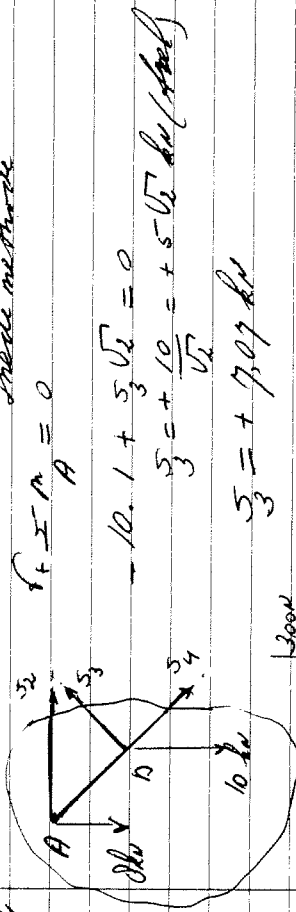 snede methode
↷+ Σ M_A = 0
- 10.1 + S_3 √2 = 0
S_3 = + 10/√2 = + 5√2 kN (trek)
S_3 = + 7,07 kN
S_2
S_3
S_4
A
D
8kN
10 kN
300N